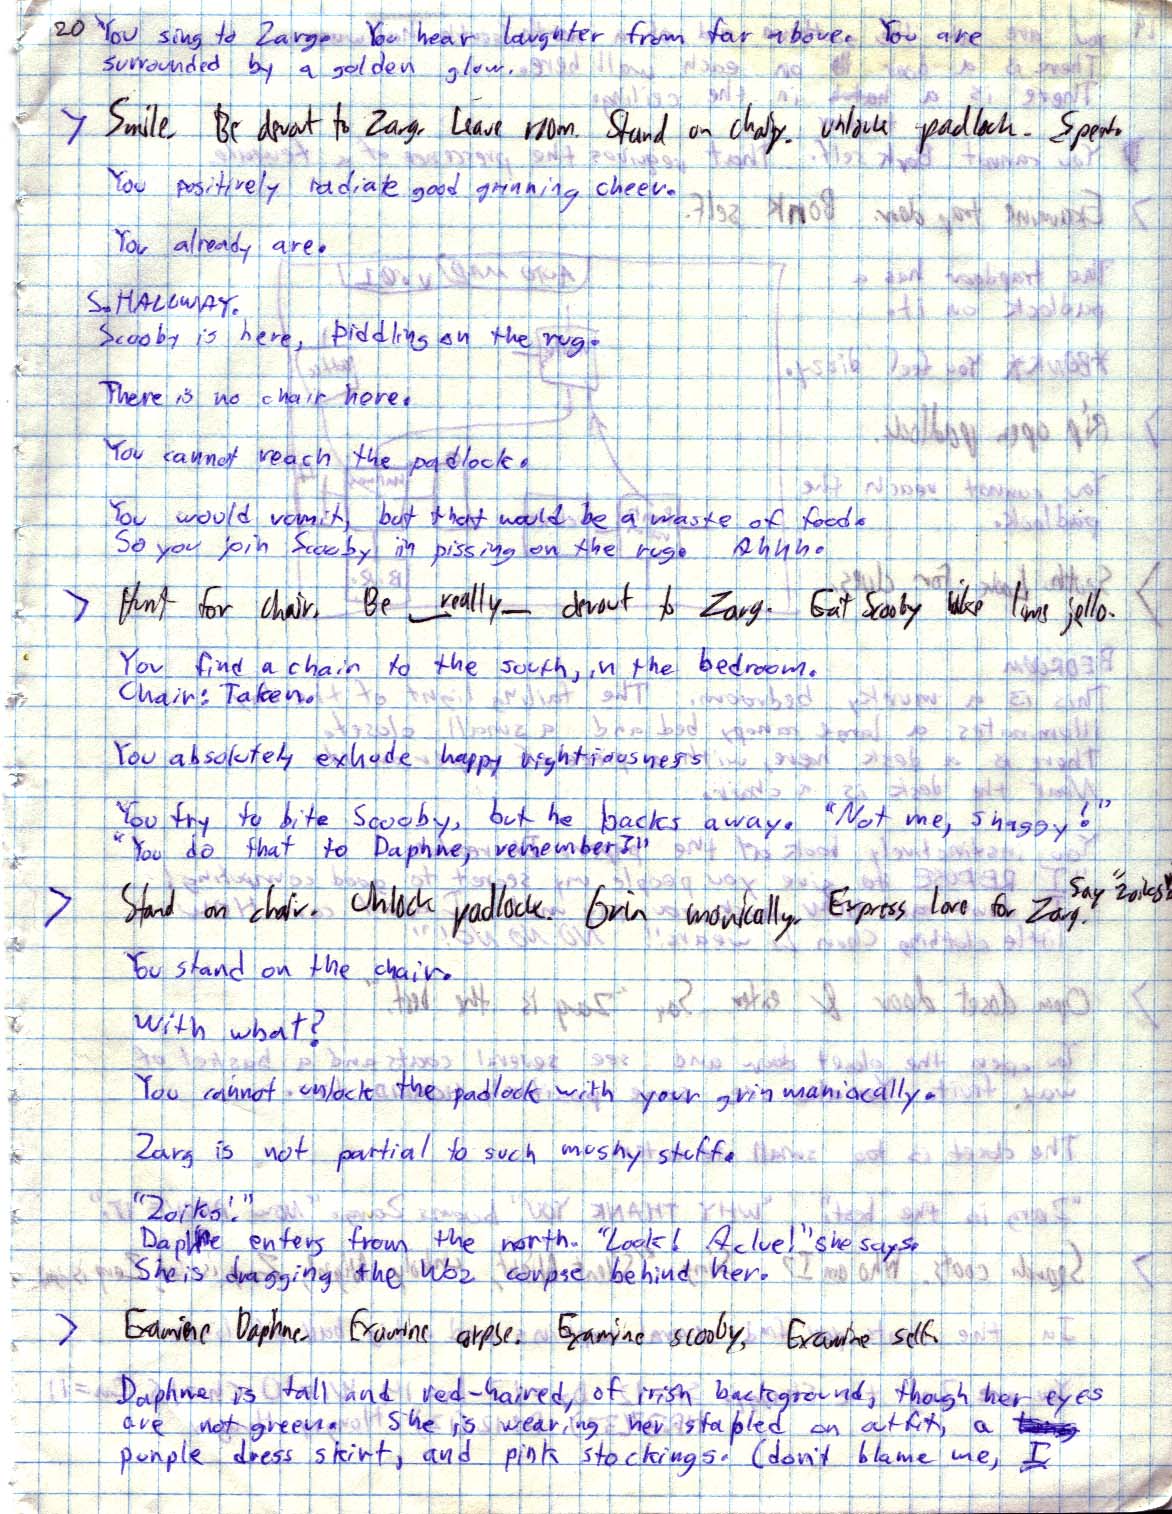 20 You sing to Zarg. You hear laughter from far above. You are
surrounded by a golden glow.
> Smile. Be devout to Zarg. Leave room. Stand on chair. Unlock padlock.
You positively radiate good grinning cheer.
You already are.
S. HALLWAY.
Scooby is here, piddling on the rug.
There is no chair here.
You cannot reach the padlock.
You would vomit, but that would be a waste of food.
So you join Scooby in pissing on the rug. Ahhh.
> Hunt for chair. Be really devout to Zarg. Eat Scooby like lime jello.
You find a chair to the south, in the bedroom.
Chair: Taken.
You absolutely exhude happy rightiousness
You try to bite Scooby, but he backs away. "Not me, Shaggy!"
"You do that to Daphne, remember?"
> Stand on chair. Unlock padlock. Grin manically. Express love for Zarg. Say "Zoiks"
You stand on the chair.
With what?
You cannot unlock the padlock with your grin maniacally.
Zarg is not partial to such mushy stuff.
"Zoiks!"
Daphne enters from the north. "Look! A clue!" she says.
She is dragging the corpse behind her.
> Examine Daphne. Examine corpse. Examine scooby. Examine self.
Daphne is tall and red-haired, of irish background, though her eyes
are not green. She is wearing her stapled on outfit, a
purple dress skirt, and pink stockings. (don't blame me, I